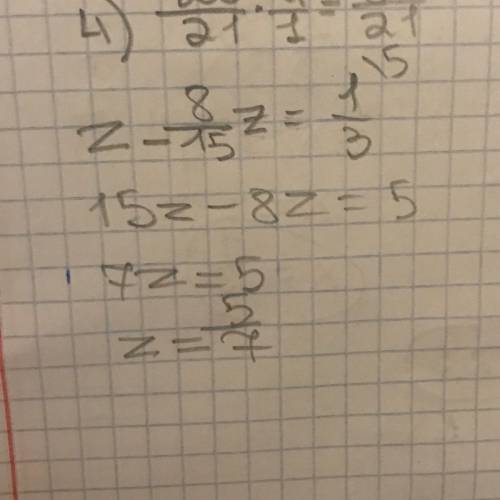 4) /21 · /1 = /21
z - 8/15 z = 1/3 \5
15z - 8z = 5
7z = 5
z = 5/7